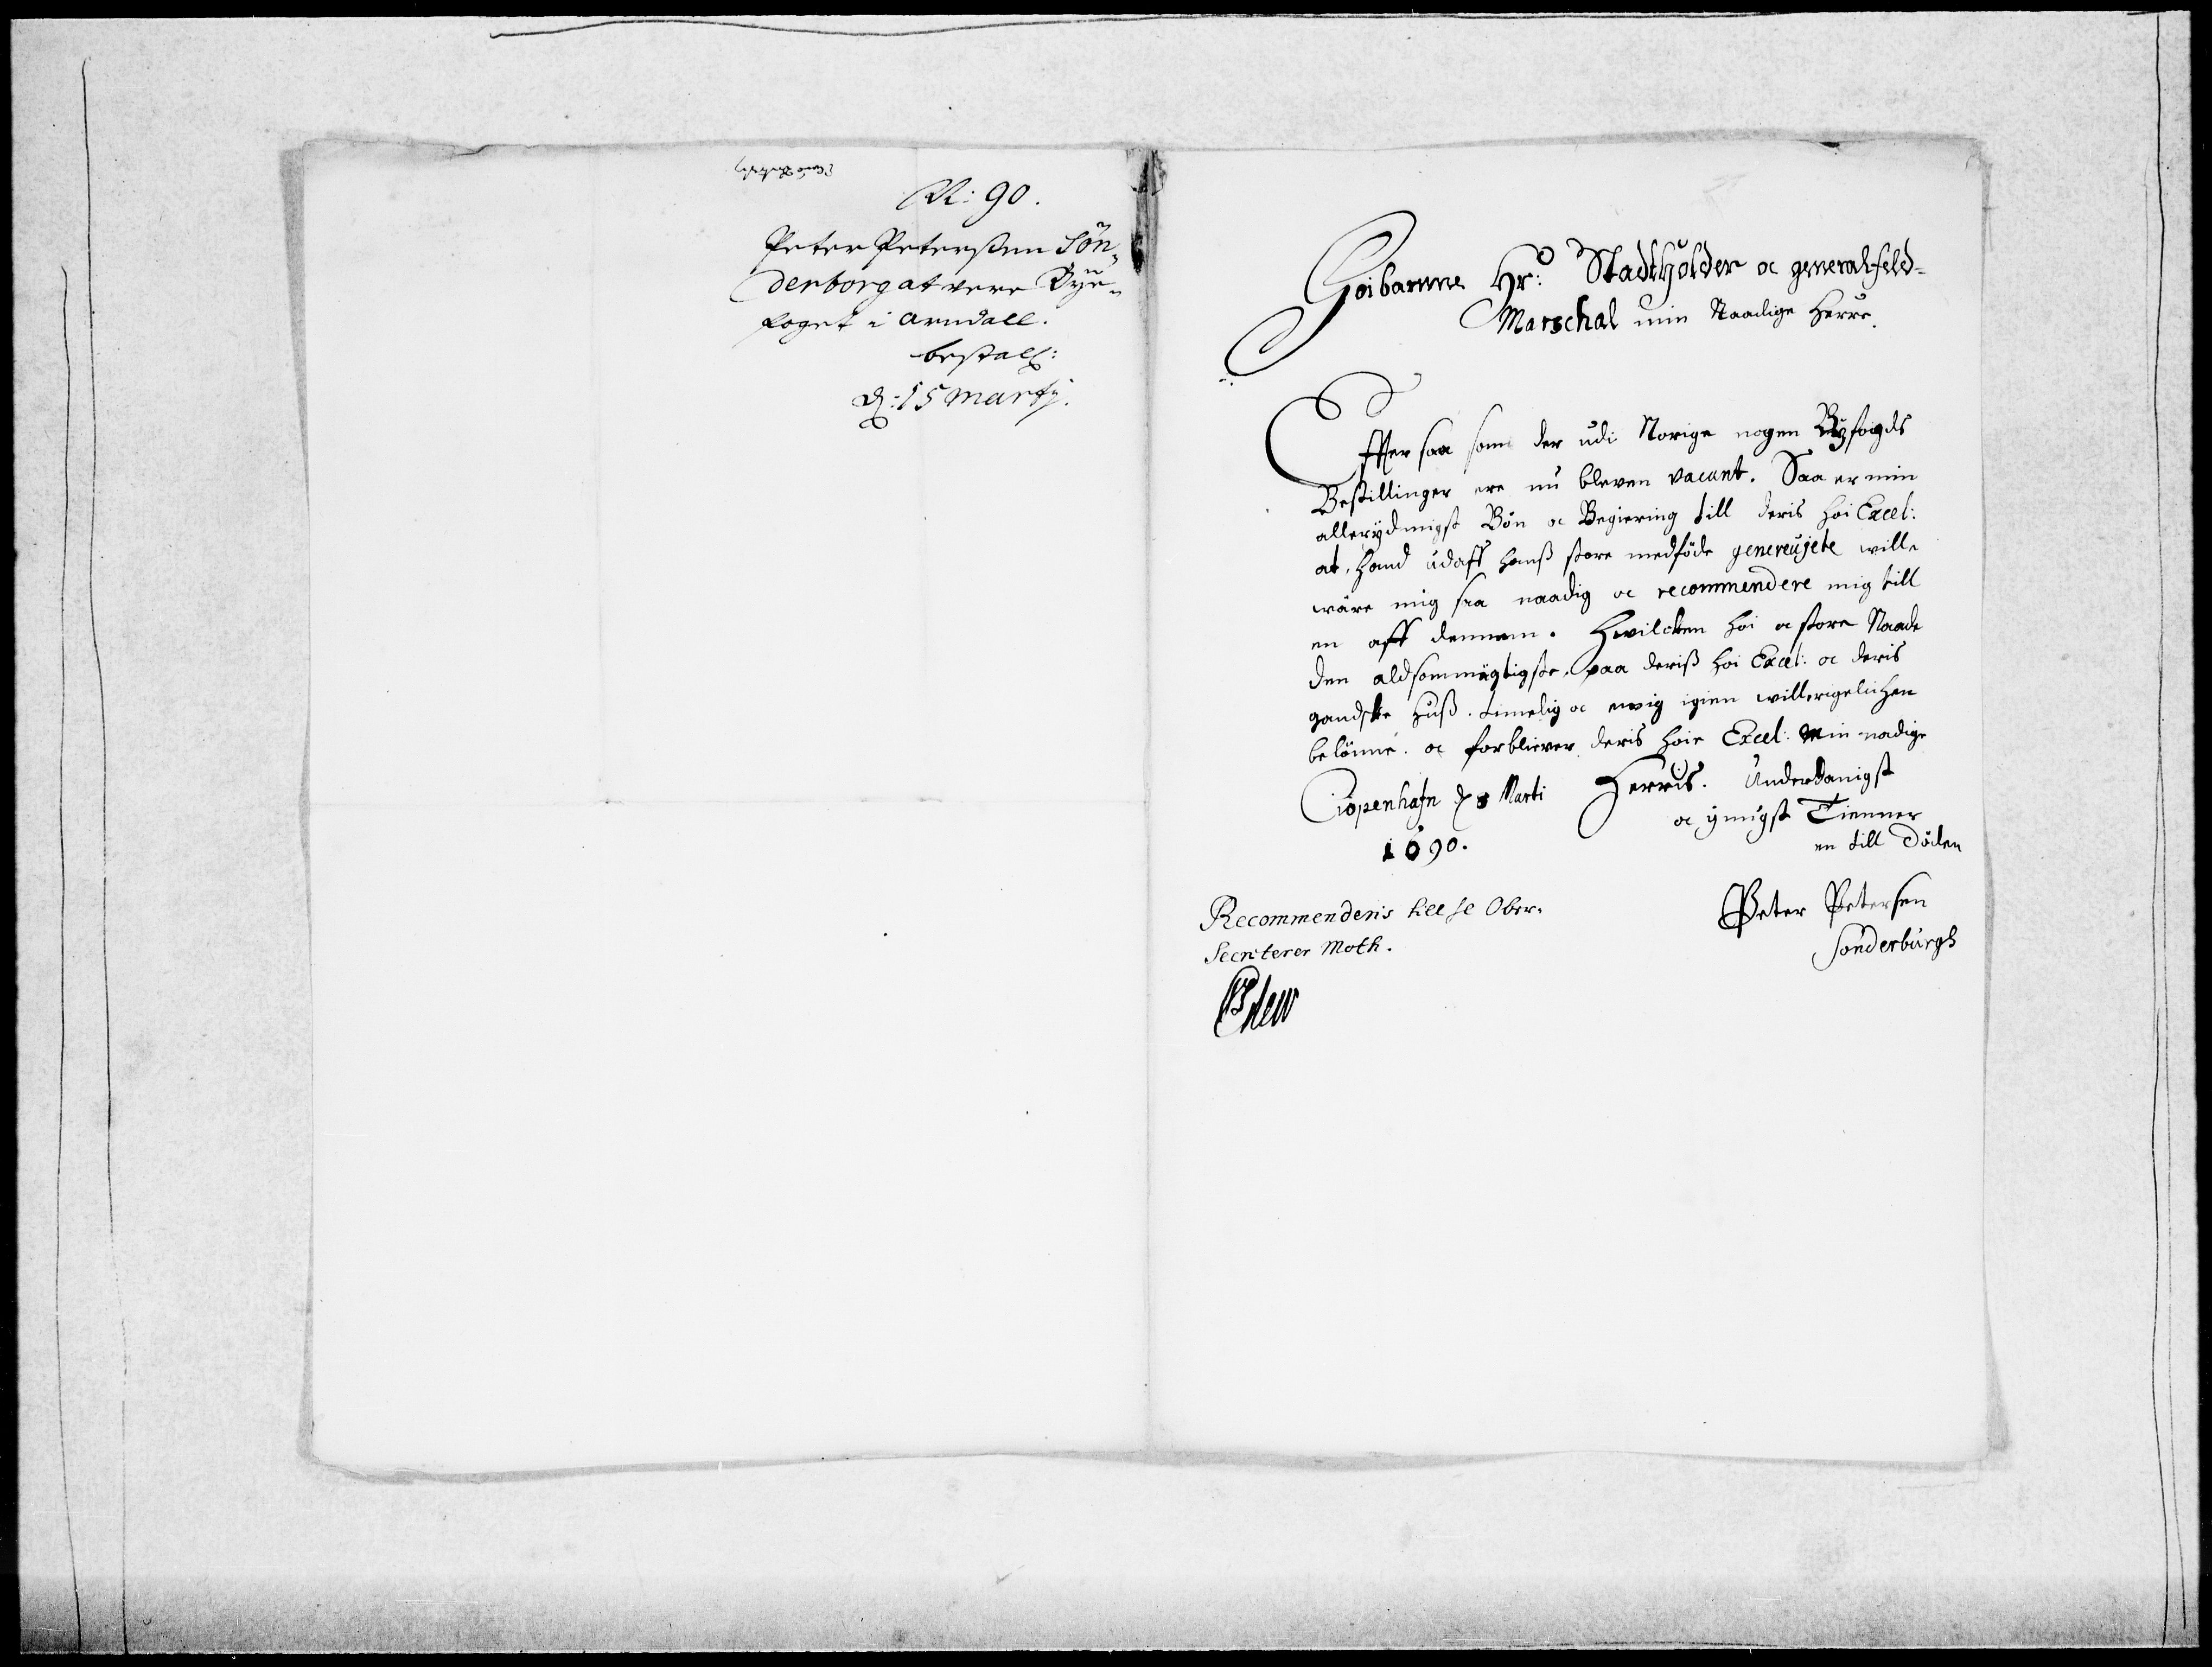 N: 90.
Peter Peterssen Søn-
derborg at vere Bye-
foget i Arndall.
bestalt:
d: 15 Martij.
Hoibaarne Hr: Stadtholder oc general feld-
Marschal min Naadige Herre.
Efftersaasom der udi Norige nogen Byfogds
Bestillinger ere nu bleven vacant. Saa er min
allerydmigst Bön oc Begiering till deris hoi Excel:
at hand udaff hanß store medföde genereujete wille
wäre mig saa naadig oc recommendere mig till
en aff dennem. Hvilcken hoi oc store Naade
den aldsommägtigste paa deriß hoi Excel: oc deris
gandske Huß timelig oc ewig igien willerigelichen
belönne. oc forbliever deris hoie Excel: Min nadige
Herris. Underdanigst
oc ÿmÿgst Tienner
en till Döden
Ciöpenhafn d 8 Marti
1690.
Peter Petersen
Sönderburgh
Recommenderis till Hr Ober-
Secreterer Moth.